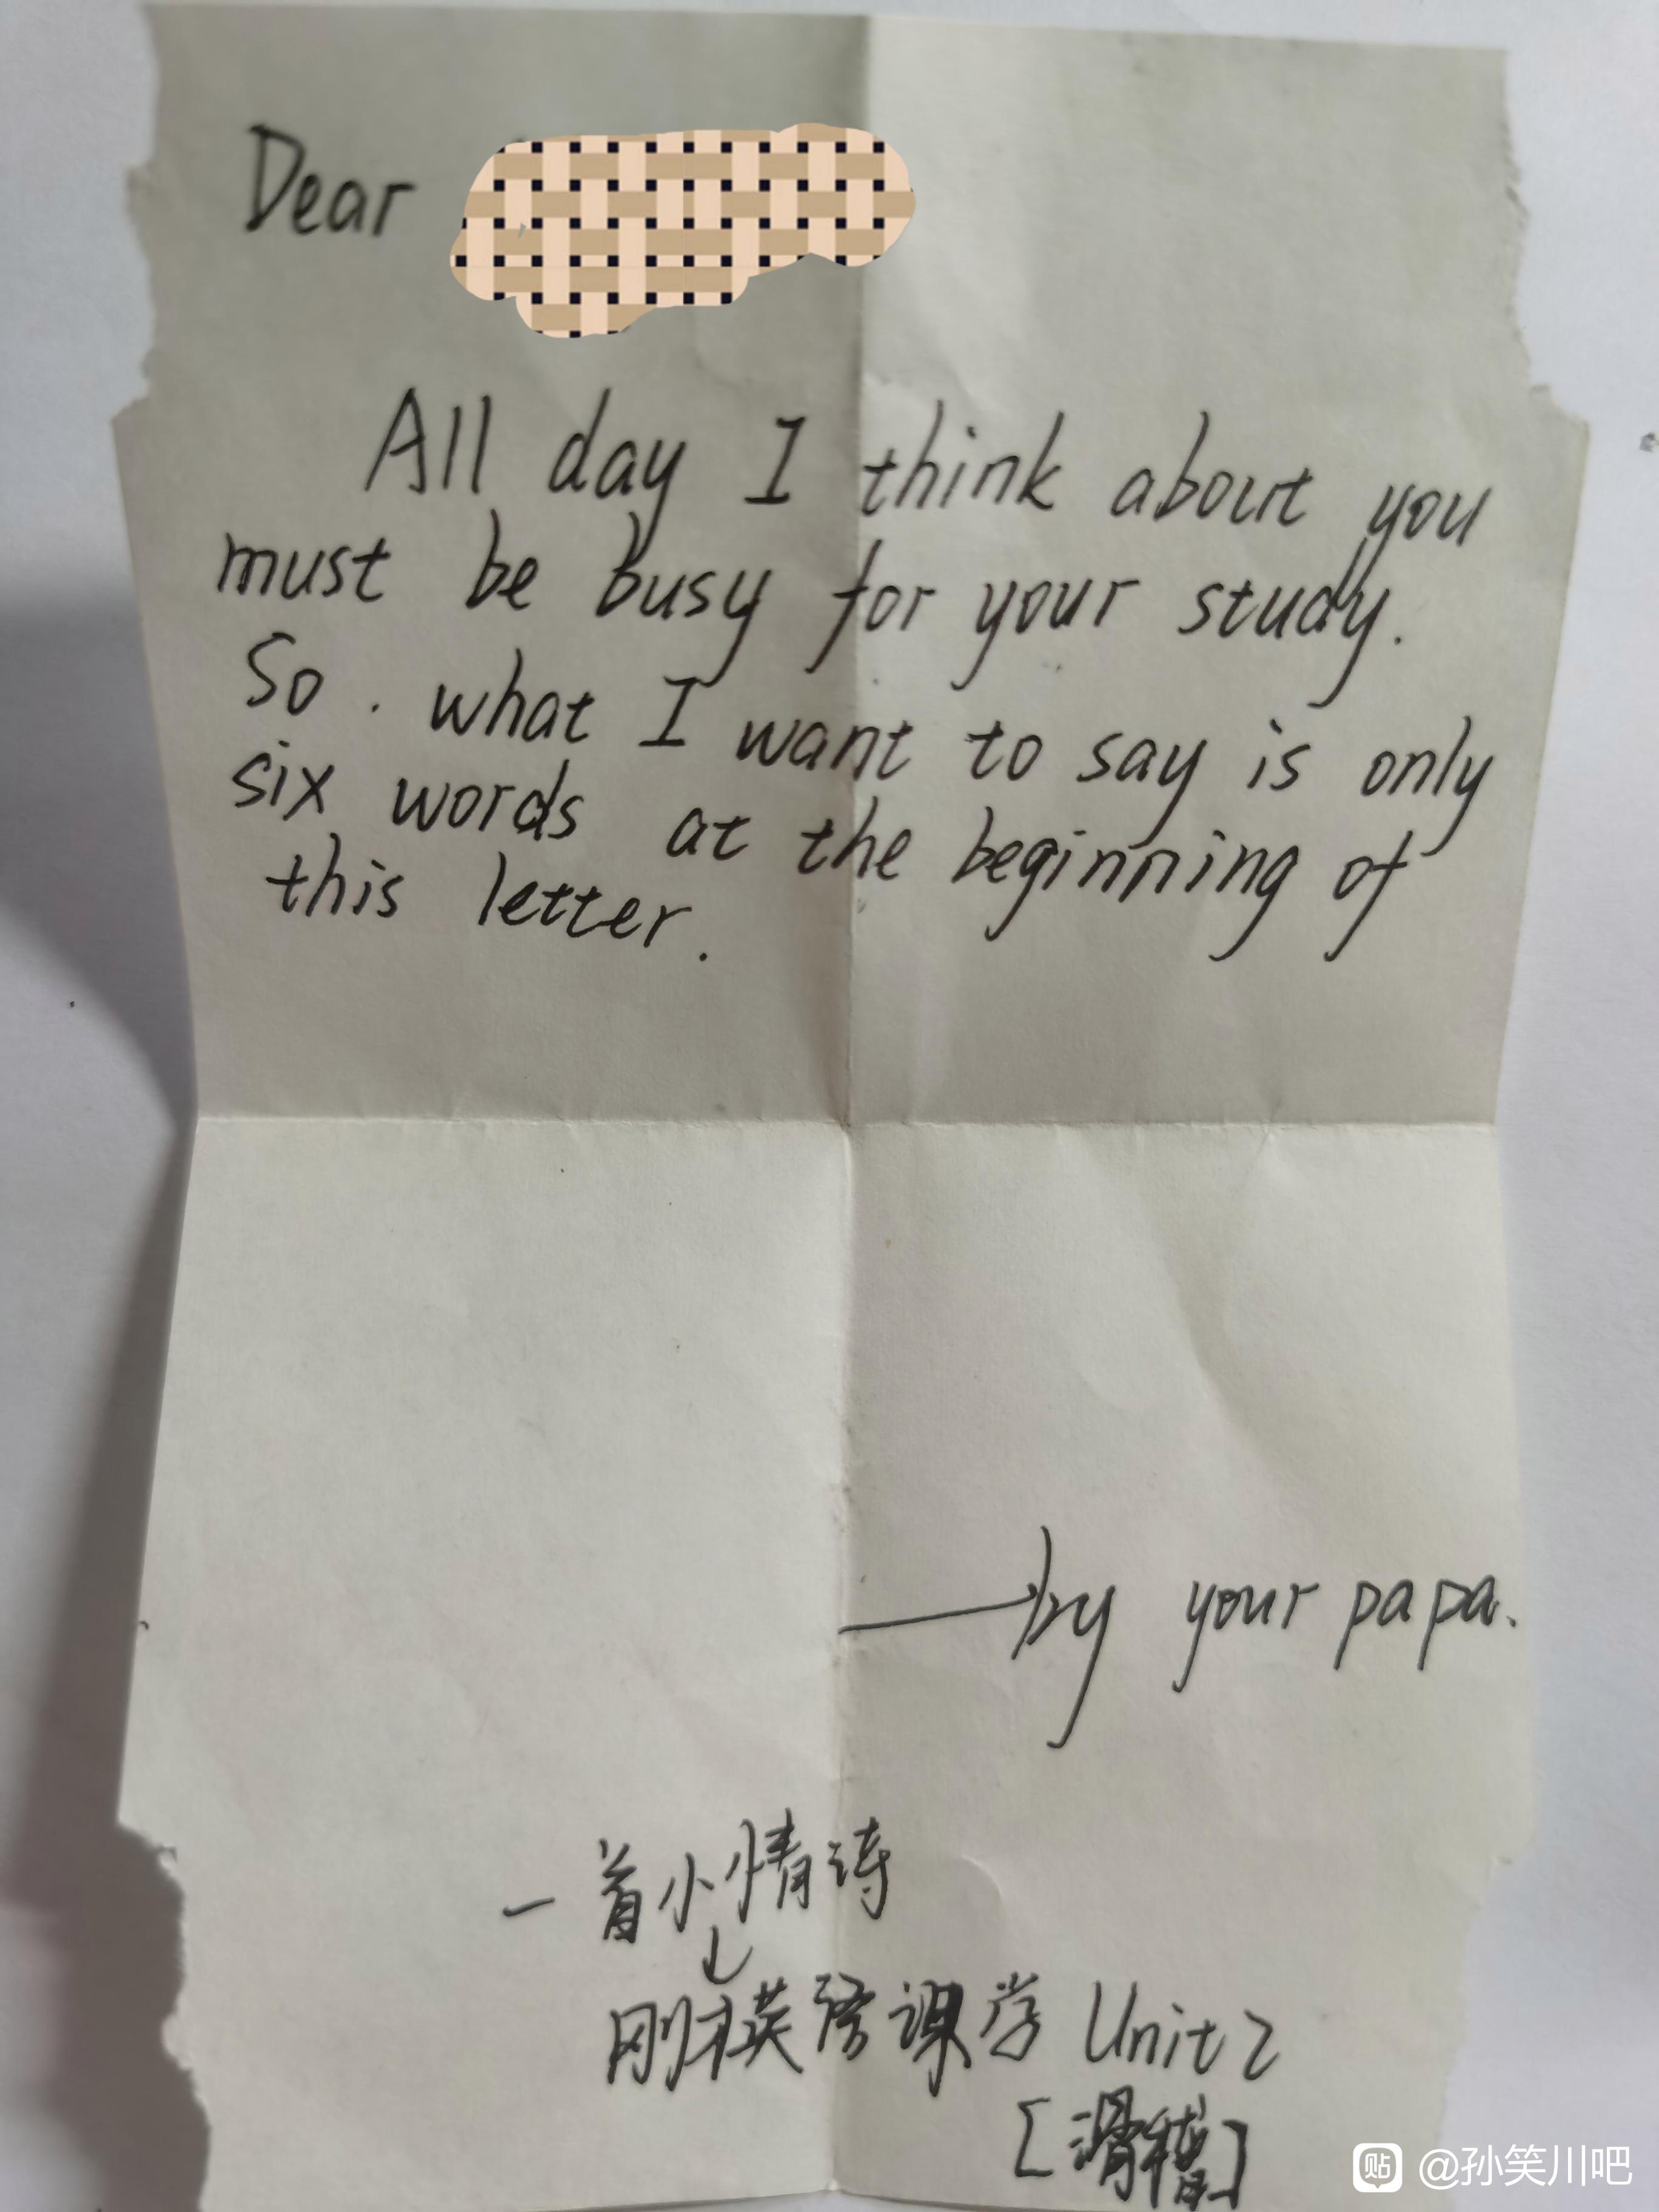 Dear
All day I think about you
must be busy for your study.
So. what I want to say is only
six words at the beginning of
this letter.
by your papa.
一首小情诗
刚才英语课学 Unit 2
[滑稽]
贴 @孙笑川吧